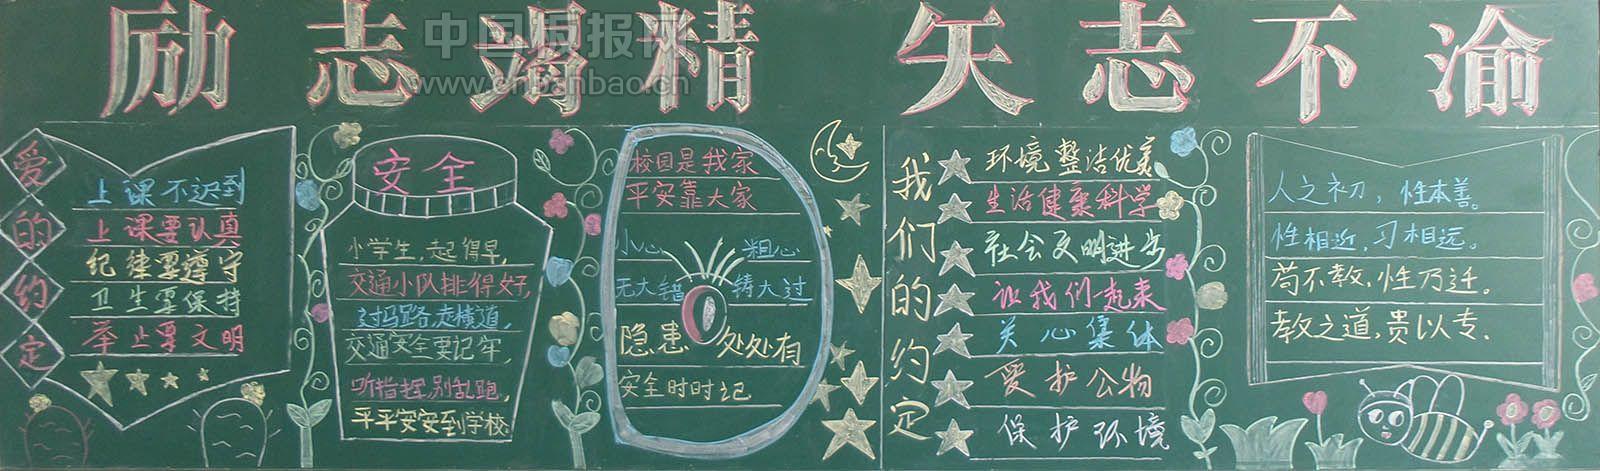 励志竭精 矢志不渝
中国板报网
www.cnbanbao.cn
爱的约定
上课不迟到
上课要认真
纪律要遵守
卫生要保持
举止要文明
安全
小学生,起得早,
交通小队排得好,
过马路,走横道,
交通安全要记牢,
听指挥,别乱跑,
平平安安到学校。
校园是我家
平安靠大家
小心 粗心
无大错 铸大过
隐患 处处有
安全时时记
我们的约定
环境整洁优美
生活健康科学
社会文明进步
让我们一起来
关心集体
爱护公物
保护环境
人之初,性本善。
性相近,习相远。
苟不教,性乃迁。
教之道,贵以专.